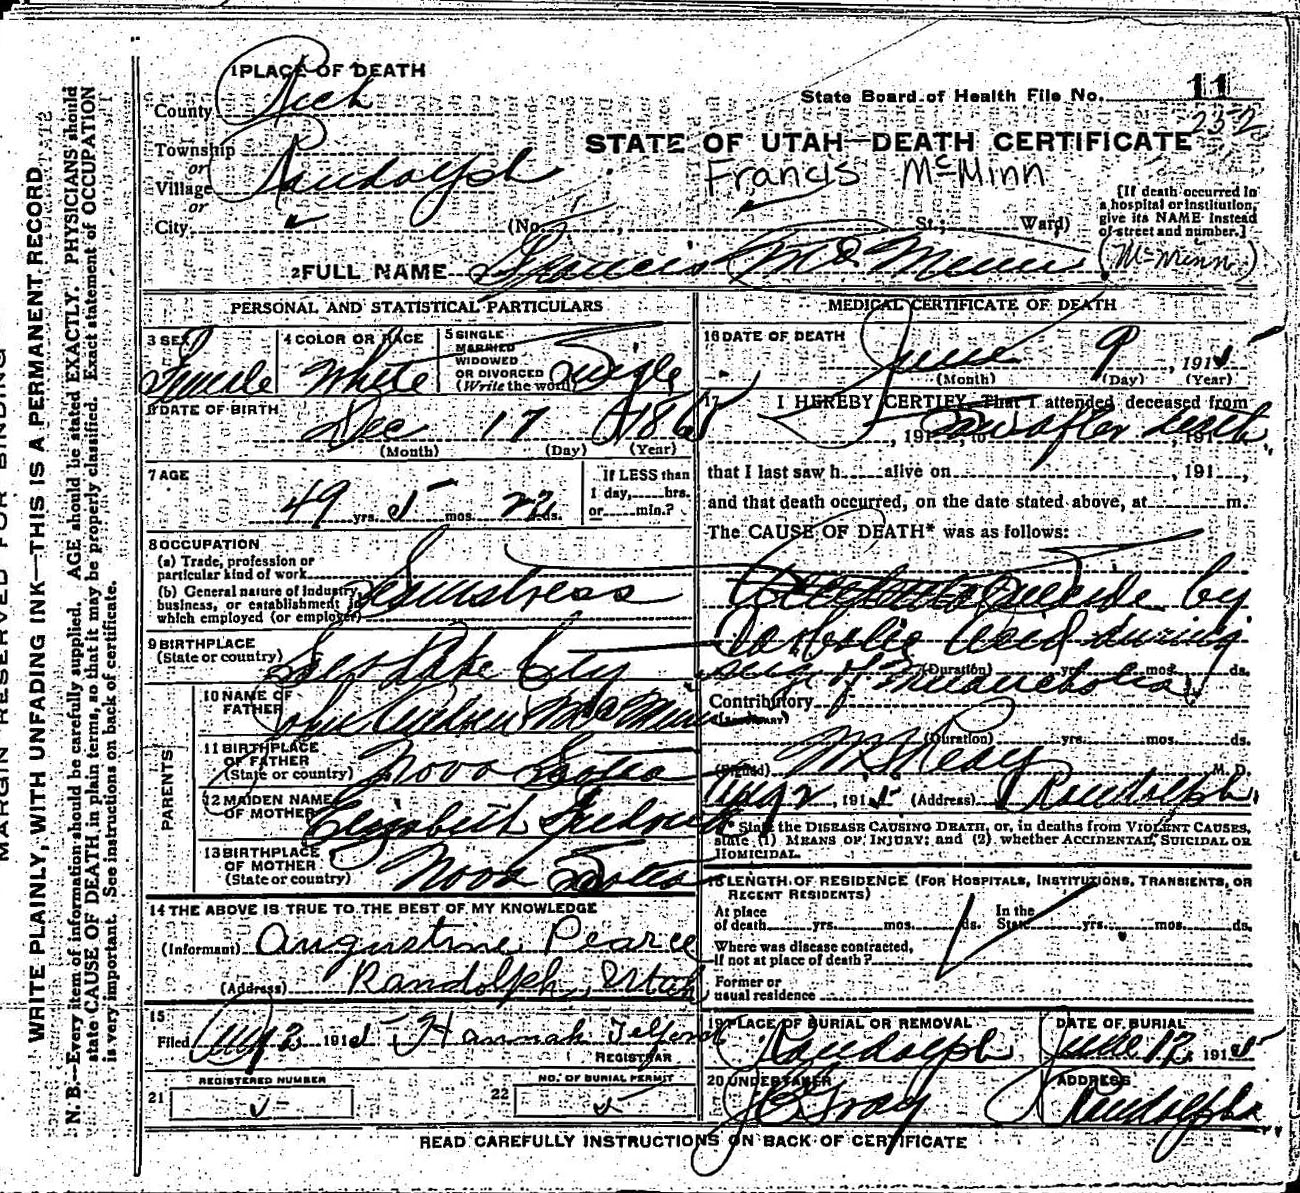 MARGIN RESERVED FOR BINDING
WRITE PLAINLY, WITH UNFADING INK—THIS IS A PERMANENT RECORD
N. B.—Every item of information should be carefully supplied. AGE should be stated EXACTLY. PHYSICIANS should
state CAUSE OF DEATH in plain terms, so that it may be properly classified. Exact statement of OCCUPATION
is very important. See instructions on back of certificate.
1 PLACE OF DEATH
County Rich
Township
or
Village Randolph
or
City
State Board of Health File No. 11
232
STATE OF UTAH—DEATH CERTIFICATE
Francis McMinn
(No. St.; Ward)
[If death occurred in
a hospital or institution,
give its NAME instead
of street and number.]
2 FULL NAME Francis McMinn (McMinn)
PERSONAL AND STATISTICAL PARTICULARS
3 SEX Female
4 COLOR OR RACE White
5 SINGLE
MARRIED
WIDOWED
OR DIVORCED
(Write the word) Single
6 DATE OF BIRTH
Dec 17 1865
(Month) (Day) (Year)
7 AGE
49 yrs. 5 mos. 22 ds.
If LESS than
1 day, hrs.
or min.?
8 OCCUPATION
(a) Trade, profession or
particular kind of work
(b) General nature of industry,
business, or establishment in
which employed (or employer) Seamstress
9 BIRTHPLACE
(State or country) Salt Lake City
PARENTS
10 NAME OF
FATHER John Andrew McMinn
11 BIRTHPLACE
OF FATHER
(State or country) Nova Scotia
12 MAIDEN NAME
OF MOTHER Elizabeth
13 BIRTHPLACE
OF MOTHER
(State or country) Nova Scotia
14 THE ABOVE IS TRUE TO THE BEST OF MY KNOWLEDGE
(Informant) Augustine Pearce
(Address) Randolph, Utah
15
Filed Aug 2 1915 Hannah Telford
REGISTRAR
REGISTERED NUMBER
21
NO. OF BURIAL PERMIT
22
MEDICAL CERTIFICATE OF DEATH
16 DATE OF DEATH
June 9, 1915
(Month) (Day) (Year)
17 I HEREBY CERTIFY, That I attended deceased from
, 191 , to Saw after death 191
that I last saw h alive on , 191 ,
and that death occurred, on the date stated above, at m.
The CAUSE OF DEATH* was as follows:
Suicide by
Carbolic Acid during
(Duration) yrs. mos. ds.
of Melancholia
Contributory
(Duration) yrs. mos. ds.
(Signed) M. D.
Aug 2, 1915 (Address) Randolph
* State the DISEASE CAUSING DEATH, or, in deaths from VIOLENT CAUSES,
state (1) MEANS OF INJURY; and (2) whether ACCIDENTAL, SUICIDAL OR
HOMICIDAL.
18 LENGTH OF RESIDENCE (FOR HOSPITALS, INSTITUTIONS, TRANSIENTS, OR
RECENT RESIDENTS)
At place
of death yrs. mos. ds.
In the
State yrs. mos. ds.
Where was disease contracted,
if not at place of death?
Former or
usual residence
19 PLACE OF BURIAL OR REMOVAL
Randolph
DATE OF BURIAL
June 12, 1915
20 UNDERTAKER
Gray
ADDRESS
Randolph
READ CAREFULLY INSTRUCTIONS ON BACK OF CERTIFICATE